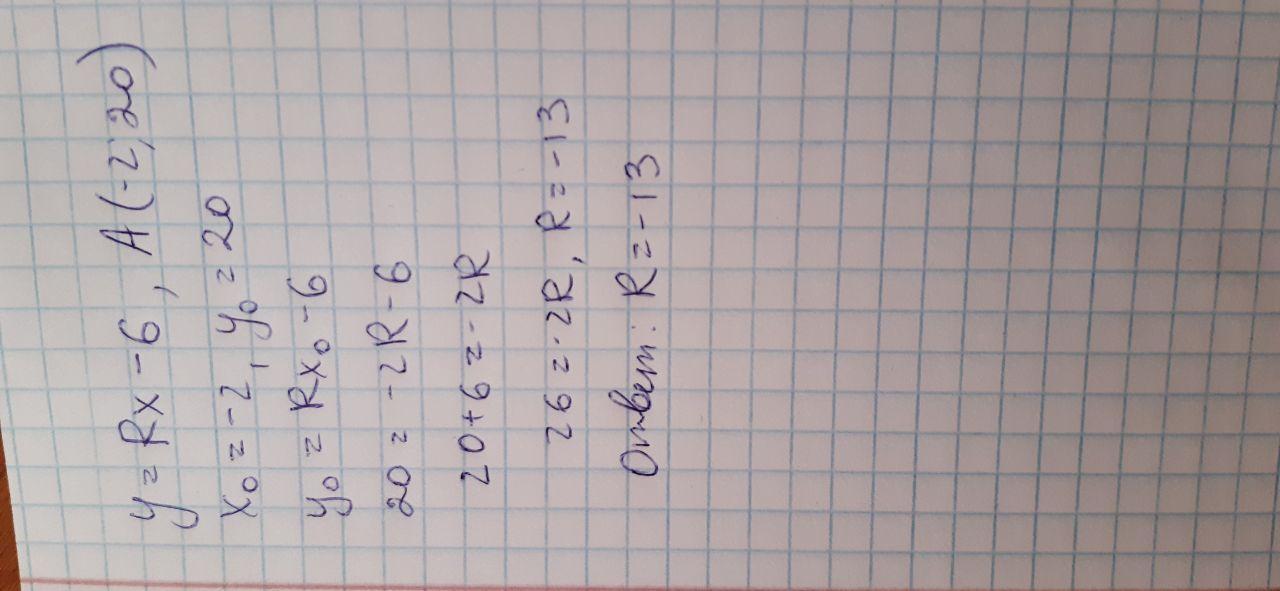 y = Rx - 6, A(-2; 20)
x₀ = -2, y₀ = 20
y₀ = Rx₀ - 6
20 = -2R - 6
20 + 6 = -2R
26 = -2R, R = -13
Ответ: R = -13